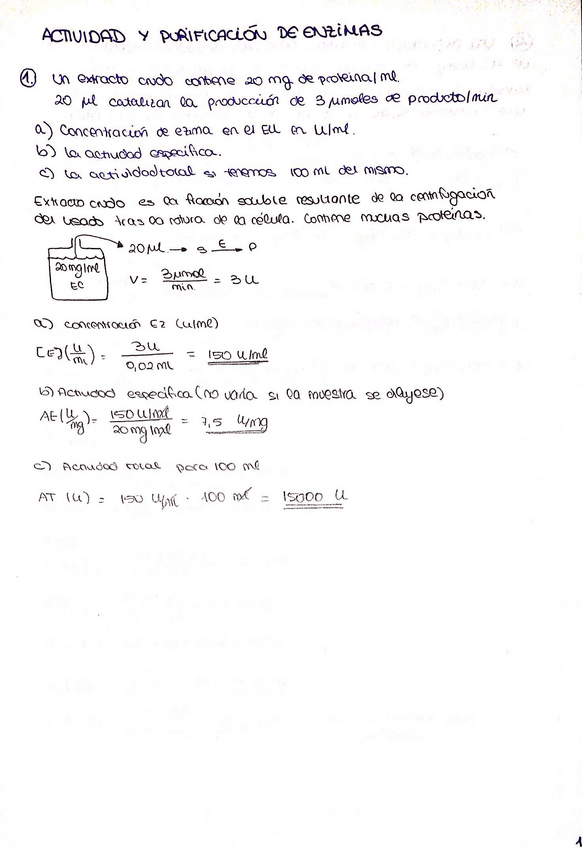 ACTIVIDAD Y PURIFICACIÓN DE ENZIMAS
1. Un extracto crudo contiene 20 mg de proteína/ml.
20 µl catalizan la producción de 3 µmoles de producto/min
a) Concentración de ezima en el EU en U/ml.
b) la actividad específica.
c) La actividad total si tenemos 100 ml del mismo.
Extracto crudo es la fracción soluble resultante de la centrifugación
del usado tras la rotura de la célula. Contiene muchas proteínas.
20 µl → S E→ P
20mg/ml
EC
V = 3 µmol / min = 3 U
a) concentración EZ (U/ml)
[E](U/ml) = 3U / 0,02 ml = 150 U/ml
b) Actividad específica (no varía si la muestra se diluyese)
AE(U/mg) = 150 U/ml / 20 mg/ml = 7,5 U/mg
c) Actividad total para 100 ml
AT (U) = 150 U/ml · 100 ml = 15000 U
1